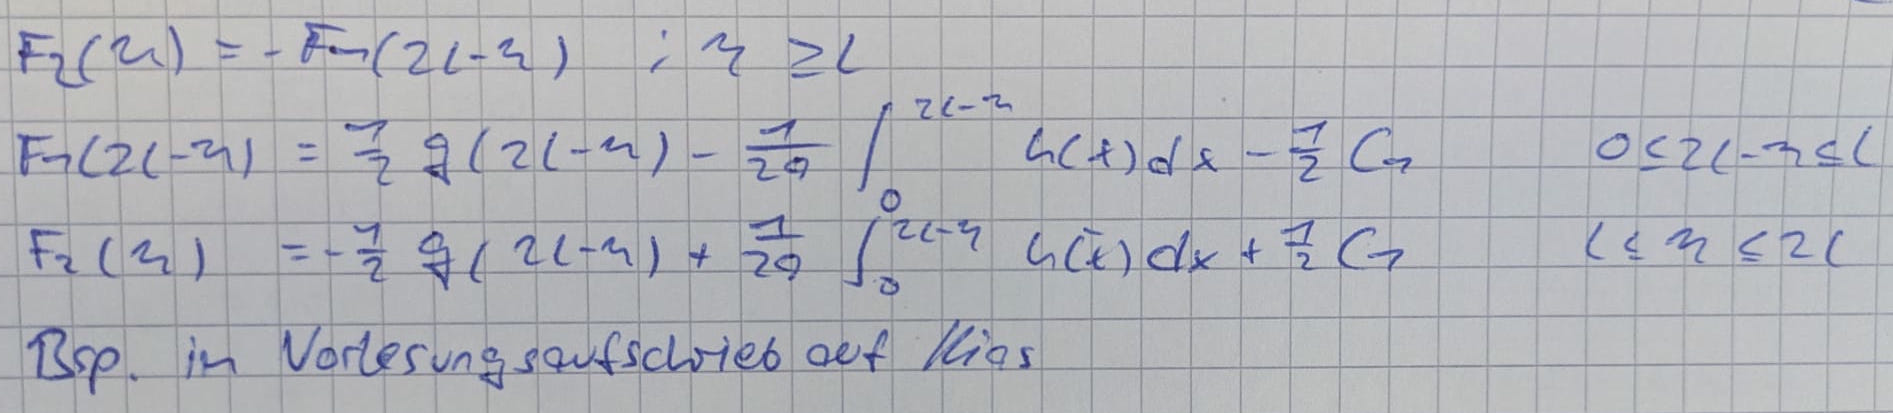 F₂(η) = - F₁(2L-η) ; η ≥ L
F₁(2L-η) = 1/2 g(2L-η) - 1/2a ∫₀^{2L-η} h(x) dx - 1/2 C₁ 0 ≤ 2L-η ≤ L
F₂(η) = -1/2 g(2L-η) + 1/2a ∫₀^{2L-η} h(x) dx + 1/2 C₁ L ≤ η ≤ 2L
Bsp. in Vorlesungsaufschrieb auf Ilias